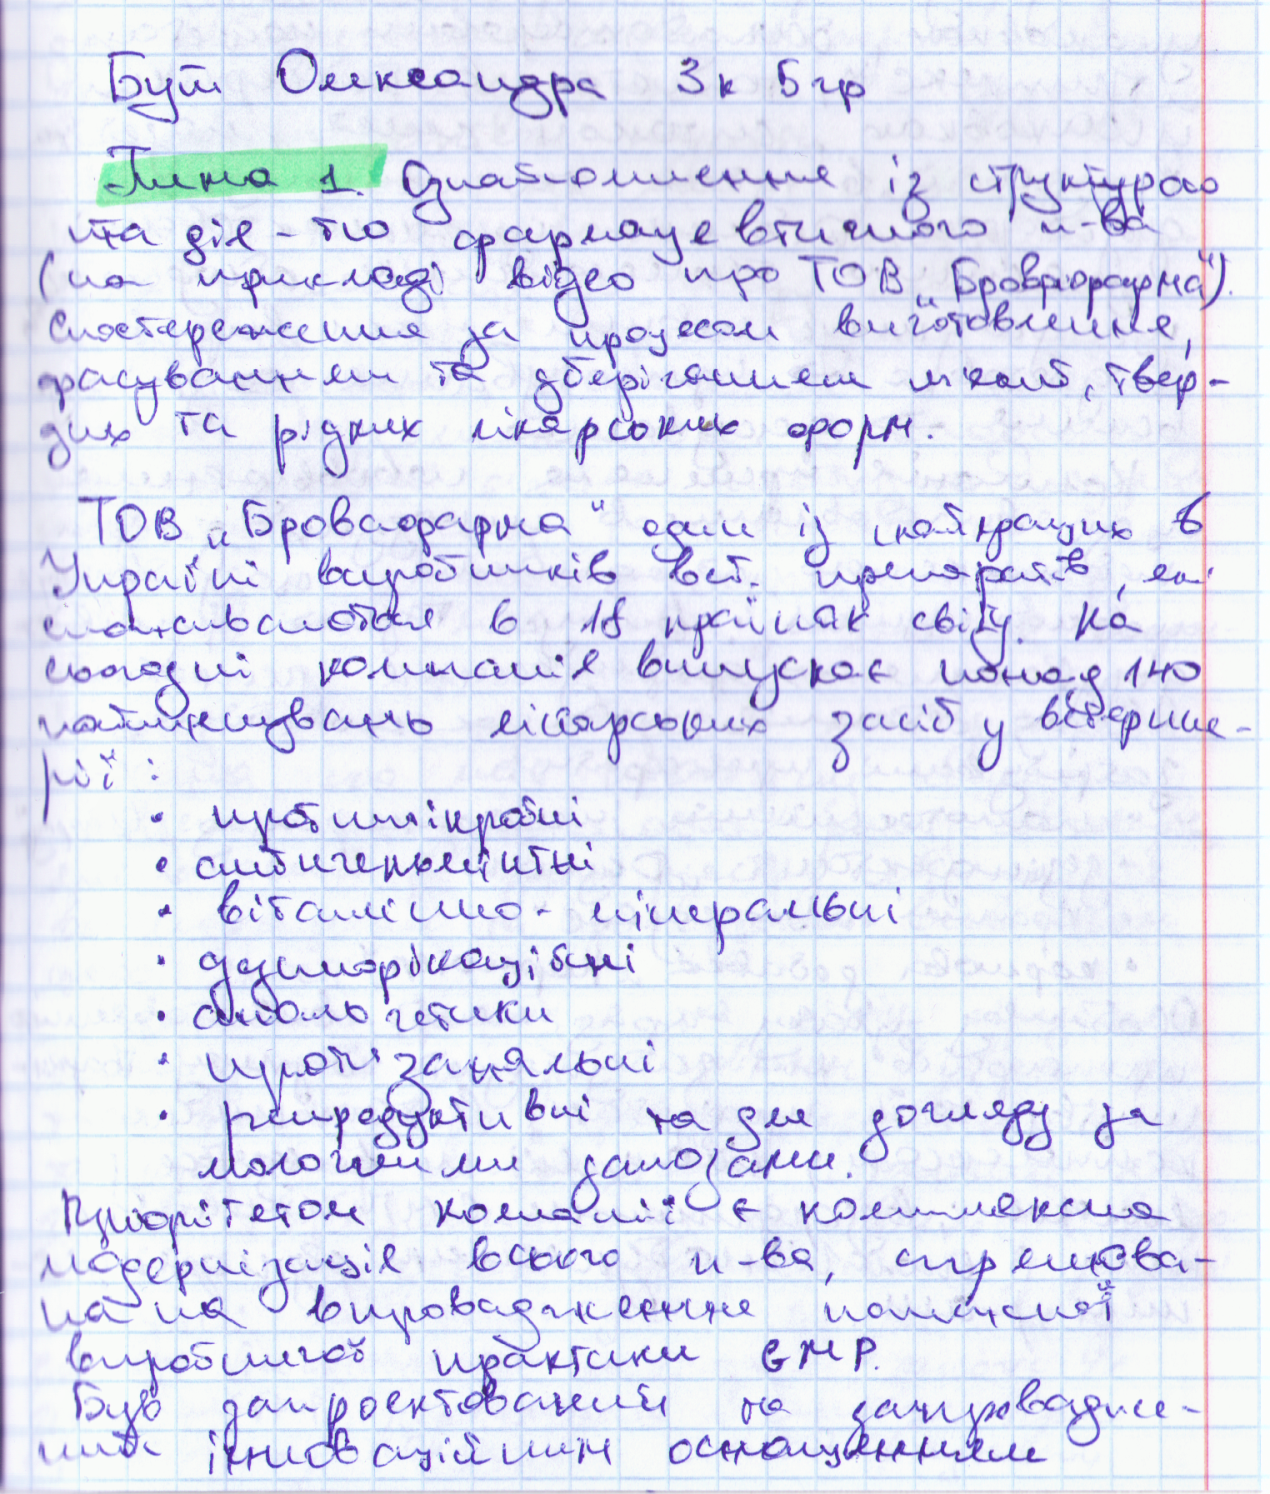 Бут Олександра 3к 5гр
Тема 1. Ознайомлення із структурою
та дія-тю фармацевтичного п-ва
(на прикладі відео про ТОВ „Бровафарма").
Спостереження за процесом виготовлення,
фасуванням та зберіганням м'яких, твер-
дих та рідких лікарських форм.
ТОВ „Бровафарма" один із найкращих в
Україні виробників вет. препаратів, які
споживаються в 18 країнах світу. На
сьогодні компанія випускає понад 140
найменувань лікарських засіб у ветерина-
рії:
• протимікробні
• антигельмінтні
• вітамінно-мінеральні
• дезинфікаційні
• анальгетики
• протизапальні
• репродуктивні та для догляду за
молочними залозами.
Пріоритетом компанії є комплексна
модернізація всього п-ва, спрямова-
на на впровадження належної
виробничої практики GMP.
Був запроектований та запровадже-
ний інноваційним оснащенням